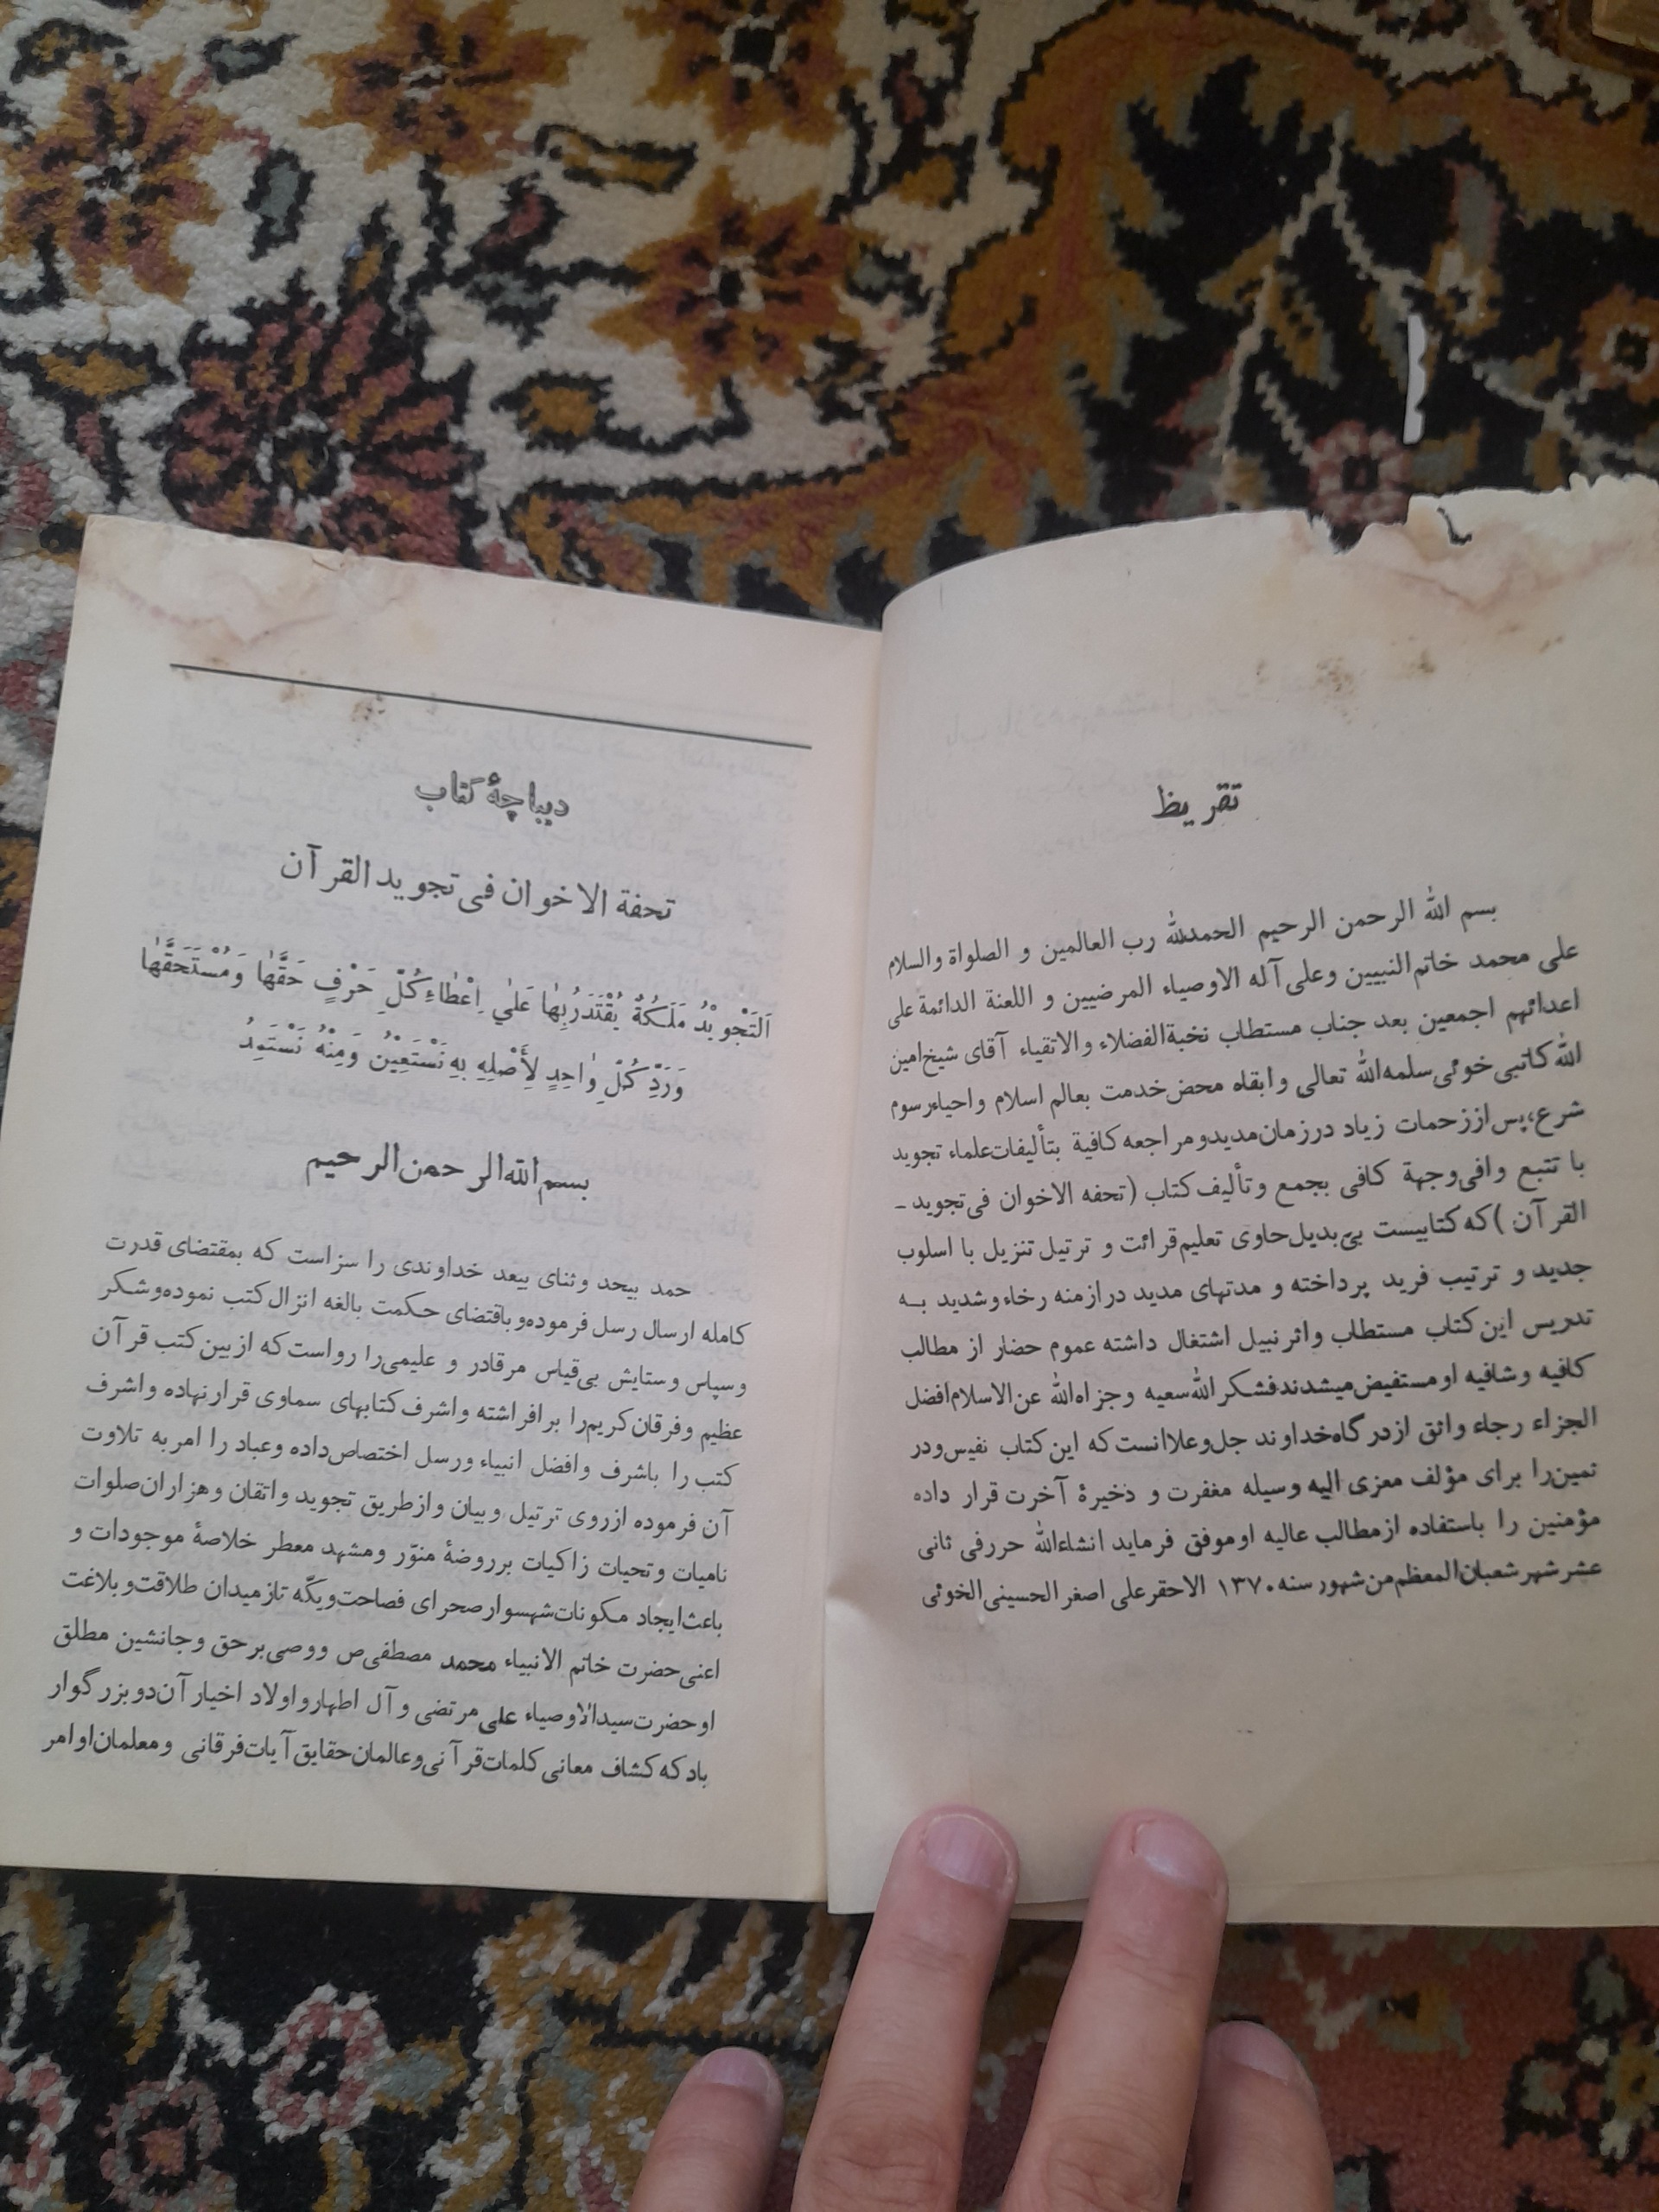 تقریظ
بسم الله الرحمن الرحیم الحمدلله رب العالمین و الصلواة والسلام
علی محمد خاتم النبیین وعلی آله الاوصیاء المرضیین و اللعنة الدائمة علی
اعدائهم اجمعین بعد جناب مستطاب نخبة الفضلاء والاتقیاء آقای شیخ امین
الله کاتبی خوئی سلمه الله تعالی وابقاه محض خدمت بعالم اسلام واحیاء رسوم
شرع، پس از زحمات زیاد در زمان مدید و مراجعه کافیة بتألیفات علماء تجوید
با تتبع وافی وجهة کافی بجمع وتألیف کتاب (تحفه الاخوان فی تجوید ـ
القرآن) که کتابیست بی‌بدیل حاوی تعلیم قرائت و ترتیل تنزیل با اسلوب
جدید و ترتیب فرید پرداخته و مدتهای مدید در ازمنه رخاء وشدید به
تدریس این کتاب مستطاب واثر نبیل اشتغال داشته عموم حضار از مطالب
کافیه وشافیه او مستفیض میشدند فشکر الله سعیه وجزاه الله عن الاسلام افضل
الجزاء رجاء واثق از درگاه خداوند جل وعلا انست که این کتاب نفیس ودر
ثمین را برای مؤلف معزی الیه وسیله مغفرت و ذخیرۀ آخرت قرار داده
مؤمنین را باستفاده از مطالب عالیه او موفق فرماید انشاءالله حرر فی ثانی
عشر شهر شعبان المعظم من شهور سنه ۱۳۷۰ الاحقر علی اصغر الحسینی الخوئی
دیباچۀ کتاب
تحفة الاخوان فی تجوید القرآن
اَلتَّجْوِیْدُ مَلَکَةٌ یُقْتَدَرُ بِهٰا عَلٰي اِعْطٰاءِ کُلِّ حَرْفٍ حَقَّهٰا وَمُسْتَحَقَّهٰا
وَرَدِّ کُلِّ وٰاحِدٍ لِأَصْلِهِ بِهِ نَسْتَعِیْنُ وَمِنْهُ نَسْتَمِدُ
بسم الله الرحمن الرحیم
حمد بیحد وثنای بیعد خداوندی را سزاست که بمقتضای قدرت
کامله ارسال رسل فرموده و باقتضای حکمت بالغه انزال کتب نموده وشکر
وسپاس وستایش بی‌قیاس مر قادر و علیمی را رواست که از بین کتب قرآن
عظیم وفرقان کریم را برافراشته واشرف کتابهای سماوی قرار نهاده واشرف
کتب را باشرف وافضل انبیاء ورسل اختصاص داده وعباد را امر به تلاوت
آن فرموده از روی ترتیل وبیان واز طریق تجوید واتقان وهزاران صلوات
نامیات وتحیات زاکیات بر روضۀ منوّر ومشهد معطر خلاصۀ موجودات و
باعث ایجاد مکونات شهسوار صحرای فصاحت و یکّه تاز میدان طلاقت و بلاغت
اعنی حضرت خاتم الانبیاء محمد مصطفی ص ووصی بر حق وجانشین مطلق
او حضرت سید الاوصیاء علی مرتضی وآل اطهار و اولاد اخیار آن دو بزرگوار
باد که کشاف معانی کلمات قرآنی و عالمان حقایق آیات فرقانی ومعلمان اوامر